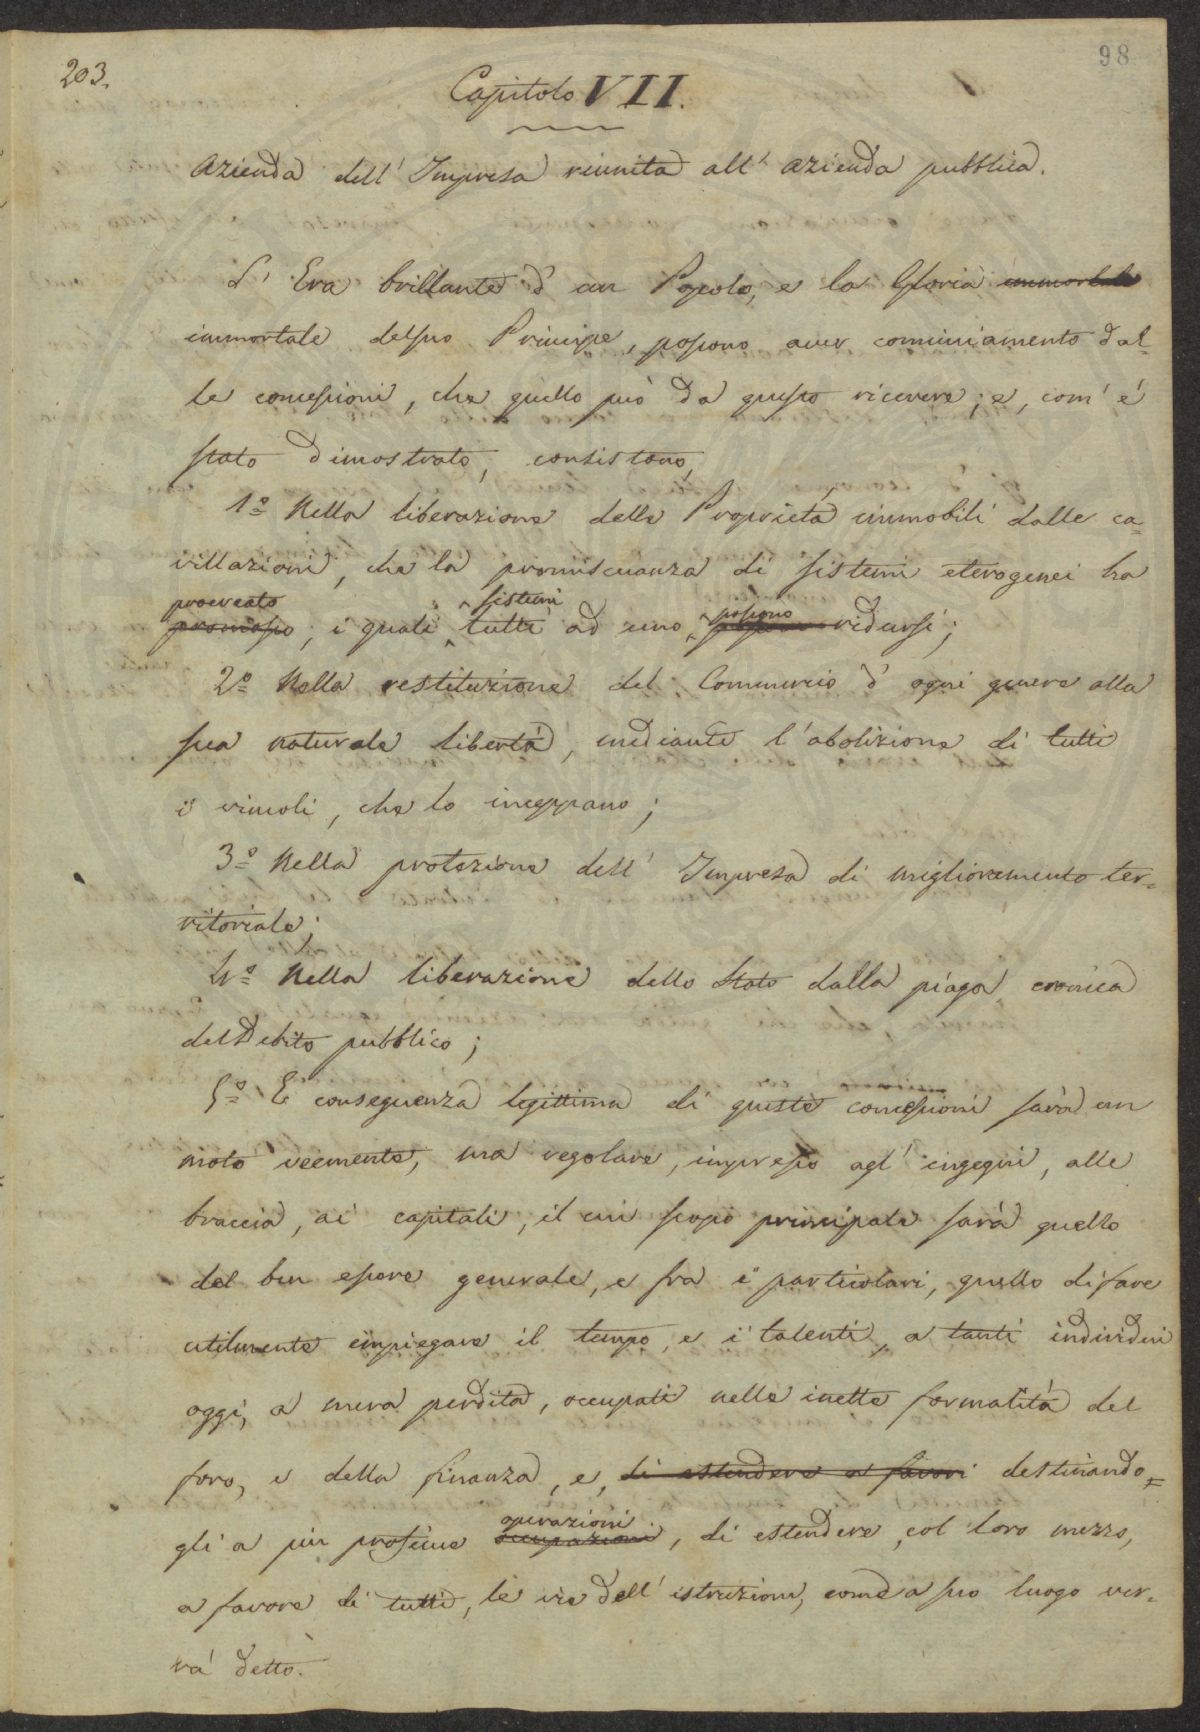 203.
98
Capitolo VII.
Azienda dell' Impresa riunita all' azienda pubblica.
L' Era brillante d' un Popolo, e la Gloria immortale
immortale del suo Principe, possono aver cominciamento dal-
le concessioni, che quello può da questo ricevere; e, com' é
stato dimostrato, consistono,
1.º Nella liberazione delle Proprietá immobili dalle ca=
villazioni, che la promiscuanza di sistemi eterogenei ha
procreato sistemi possono
promosso, i quali tutti ad uno ridursi;
2.º Nella restituzione del Commercio d' ogni genere alla
sua naturale libertá, mediante l'abolizione di tutti
i vincoli, che lo inceppano;
3.º Nella protezione dell' Impresa di miglioramento ter=
ritoriale;
4.º Nella liberazione dello Stato dalla piaga cronica
del Debito pubblico;
5.º E conseguenza legittima di queste concessioni sarà un
moto veemente, ma regolare, impresso agl' ingegni, alle
braccia, ai capitali, il cui scopo principale sarà quello
del ben essere generale, e fra i particolari, quello di fare
utilmente impiegare il tempo, e i talenti, a tanti individui
oggi, a mera perdita, occupati nelle inette formalitá del
foro, e della finanza, e, di estendere a favori destinando=
operazioni
gli a più proficue occupazioni, di estendere, col loro mezzo,
a favore di tutti, le vie dell' istruzione, come a suo luogo ver-
rá detto.